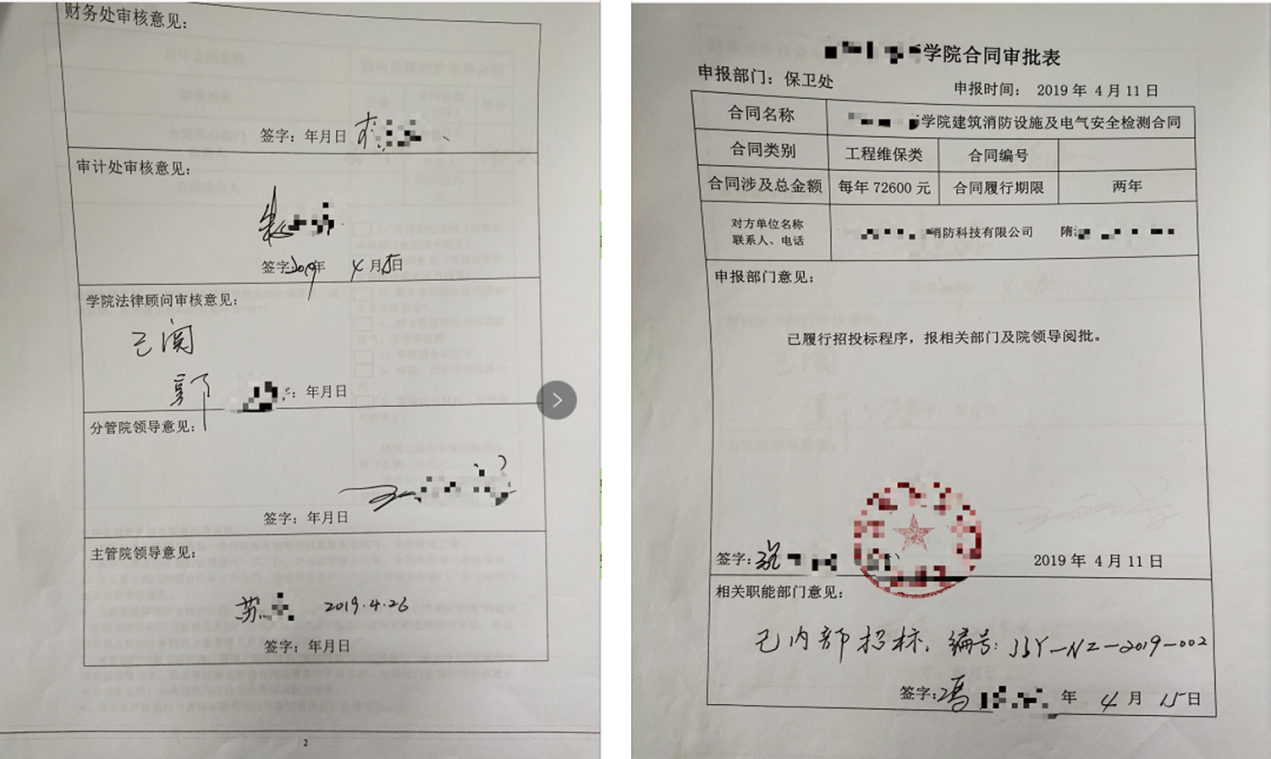 财务处审核意见：
签字： 年月日
审计处审核意见：
签字：2019年 4月15日
学院法律顾问审核意见：
已阅
郭 ：年月日
分管院领导意见：
签字：年月日
主管院领导意见：
苏 2019.4.26
签字：年月日
2
学院合同审批表
申报部门：保卫处 申报时间： 2019 年 4 月 11 日
合同名称 学院建筑消防设施及电气安全检测合同
合同类别 工程维保类 合同编号
合同涉及总金额 每年 72600 元 合同履行期限 两年
对方单位名称
联系人、电话 消防科技有限公司 隋
申报部门意见：
已履行招投标程序，报相关部门及院领导阅批。
签字： 2019 年 4 月 11 日
相关职能部门意见：
已内部招标，编号：JSY-NZ-2019-002
签字：冯 年 4 月 15 日